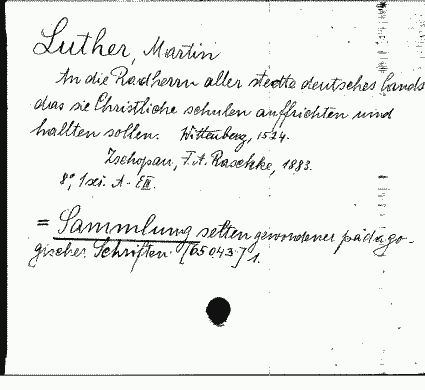 Luther, Martin
An die Radherrn aller stedte deutsches lands
das sie Christliche schulen auffrichten und
hallten sollen. Wittenberg, 1524.
Zschopau, F. A. Raschke, 1883.
8°, 1 sei. A-
= Sammlung selten gewordener pädago-
gischer Schriften. [65043] 1.